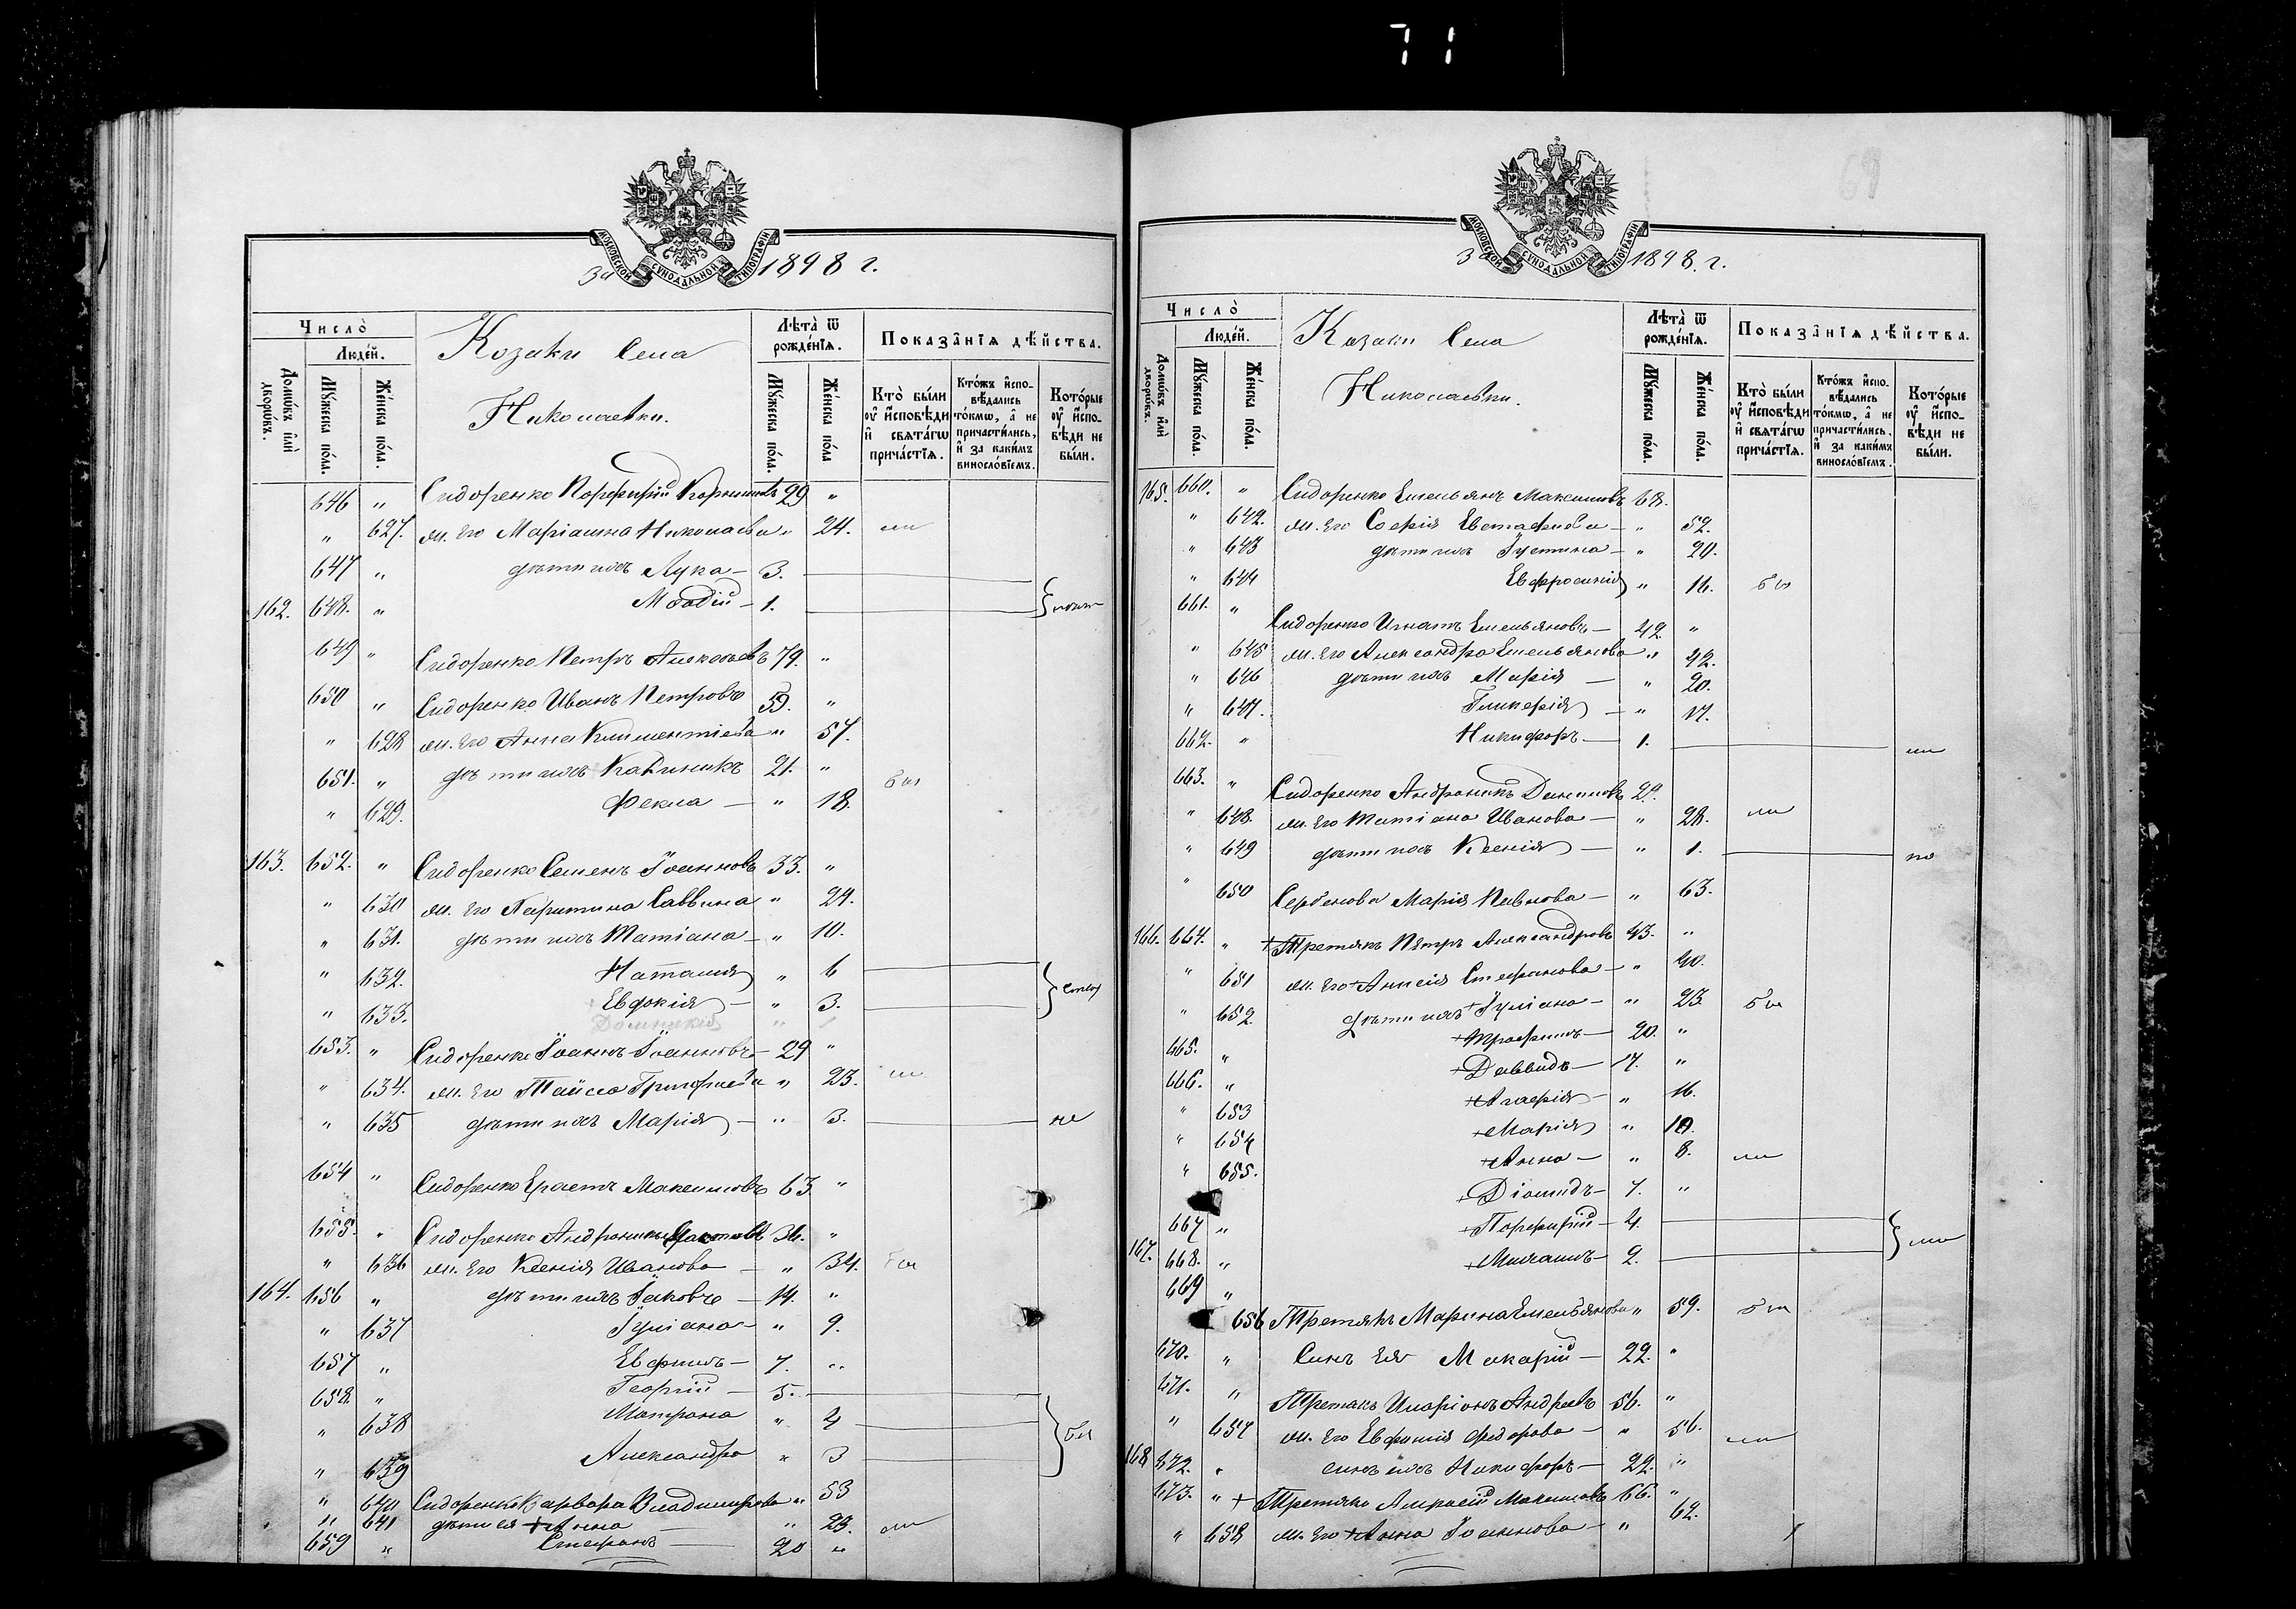 71
МОСКОВСКОЙ СУНОДАЛЬНОЙ ТИПОГРАФІИ
За 1898 г.
Число̀
Домѡ́въ и҆лѝ дворѡ́въ.
Люде́й.
Мꙋ́жеска по́ла.
Же́нска по́ла.
Козаки Села
Николаевки.
Лѣ́та ѿ рожде́нїѧ.
Мꙋ́жеска по́ла.
Же́нска по́ла
Показа̑нїѧ дѣ́йства.
Кто̀ бы́ли ᲂу҆ и҆сповѣ́ди и҆ свѧта́гѡ прича́стїѧ.
Кто́жъ и҆сповѣ́дались то́кмѡ, а҆ не причасти́лись, и҆ за каки́мъ виносло́вїемъ.
Кото́рые ᲂу҆ и҆спо-вѣ́ди не бы́ли.
646 " Сидоренко Порфирій 29 "
" 627. ж. его Маріамна Николаева " 24.
647 " дѣти ихъ Лука — 3.
162. 648. " Моѳодій — 1.
649 " Сидоренко Петръ 79. "
650 " Сидоренко Иванъ Петровъ 59. "
" 628 ж. его Анна Климентіева " 57.
651. " дѣти ихъ Каллиникъ 21. "
" 629. Фекла — " 18.
163. 652. " Сидоренко Семенъ Іоанновъ 33. "
" 630 ж. его Харитина Саввина " 29.
" 631. дѣти ихъ Татіана — " 10.
" 632. Наталія " 6
" 633. Евдокія — " 3.
Домникія
653. " Сидоренко Іоаннъ Іоанновъ — 29 "
" 634. ж. его Таисія Григорьева " 23.
" 635 дѣти ихъ Марія — " 3.
654 " Сидоренко Ерастъ Максимовъ 63 "
655. " Сидоренко Андроникъ Ерастовъ 36. "
" 636 ж. его Ксенія Иванова — " 34.
164. 656 " дѣти ихъ Іаковъ — 14. "
" 637 Іуліана — " 9.
657 " Евфимъ — 7. "
658. " Георгій — 5.
" 638 Матрона " 4
" 639 Александра " 3
" 640 Сидоренко Варвара Владимірова " 53
" 641 дѣти ея + Анна — " 23.
659 " Стефанъ — 20 "
69
МОСКОВСКОЙ СУНОДАЛЬНОЙ ТИПОГРАФІИ
За 1898. г.
Число̀
Домѡ́въ и҆лѝ дворѡ́въ.
Люде́й.
Мꙋ́жеска по́ла.
Же́нска по́ла.
Казаки Села
Николаевки.
Лѣ́та ѿ рожде́нїѧ.
Мꙋ́жеска по́ла.
Же́нска по́ла.
Показа̑нїѧ дѣ́йства.
Кто̀ бы́ли ᲂу҆ и҆сповѣ́ди и҆ свѧта́гѡ прича́стїѧ.
Кто́жъ и҆сповѣ́дались то́кмѡ, а҆ не причасти́лись, и҆ за каки́мъ виносло́вїемъ.
Кото́рые ᲂу҆ и҆спо-вѣ́ди не бы́ли.
165. 660. " Сидоренко Емельянъ Максимовъ 68.
" 642. ж. его Софія Евстафіева — " 52.
" 643 дѣти ихъ Іустина — " 20.
" 644 Евфросинія " 16.
661. " Сидоренко Игнатъ Емельяновъ — 42 "
" 645 ж. его Александра Емельянова " 42.
" 646 дѣти ихъ Марія — " 20.
" 647. Гликерія — " 17.
662. " Никифоръ — 1.
663. " Сидоренко Андроникъ Даниловъ 29.
" 648. ж. его Татіана Иванова — " 28.
" 649 дѣти ихъ Ксенія — " 1.
" 650 Сербенова Марія Павлова — " 63.
166. 664. " + Третякъ Пётръ Александровъ 43. "
" 651 ж. его + Анисія Стефанова — " 40.
" 652 дѣти ихъ + Іуліана — " 23
665. " + Трофимъ — 20. "
666. " + Даввидъ — 17. "
" 653 + Агафія — " 16.
" 654 + Марія " 10.
" 655. + Анна — " 8.
+ Діомидъ — 7. "
667 " + Порфирій — 4.
167. 668. " + Михаилъ — 2.
669 "
656 Третякъ Марина Емельянова " 59.
670. " Сынъ ея Макарій — 22. "
671. " Третякъ Иларіонъ Андреевъ 56. "
" 657 ж. его Евфимія Федорова — " 56.
168 672. " сынъ ихъ Никифоръ — 22. "
673. " + Третякъ Алексій Максимовъ 66. "
" 658 ж. его + Анна Іоаннова — " 62.